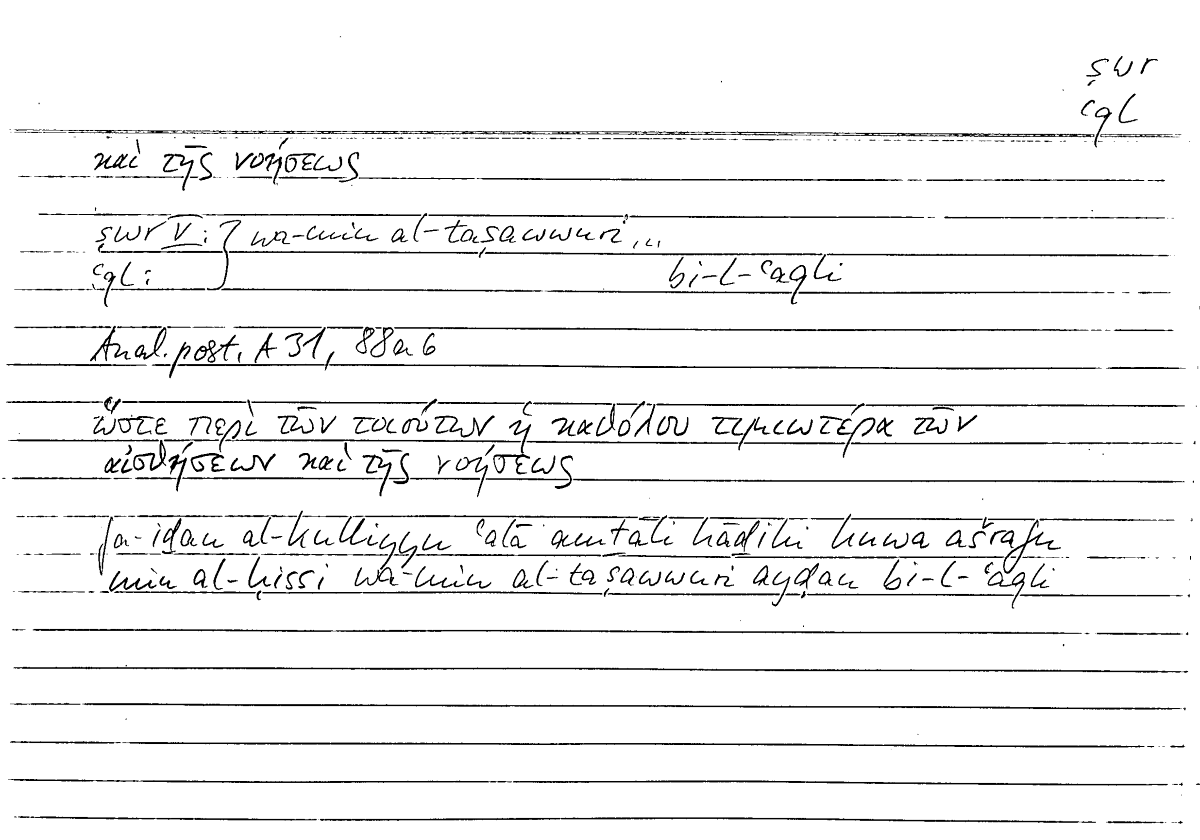 ṣwr
ʿql
καὶ τῆς νοήσεως
ṣwr V: } wa-min al-taṣawwuri...
ʿql: bi-l-ʿaqli
Anal. post. A 31, 88a6
ὥστε περὶ τῶν τοιούτων ἡ καθόλου τιμιωτέρα τῶν
αἰσθήσεων καὶ τῆς νοήσεως
fa-iḏan al-kulliyyu ʿalā amṯāli hāḏihi huwa ašrafu
min al-ḥissi wa-min al-taṣawwuri ayḍan bi-l-ʿaqli